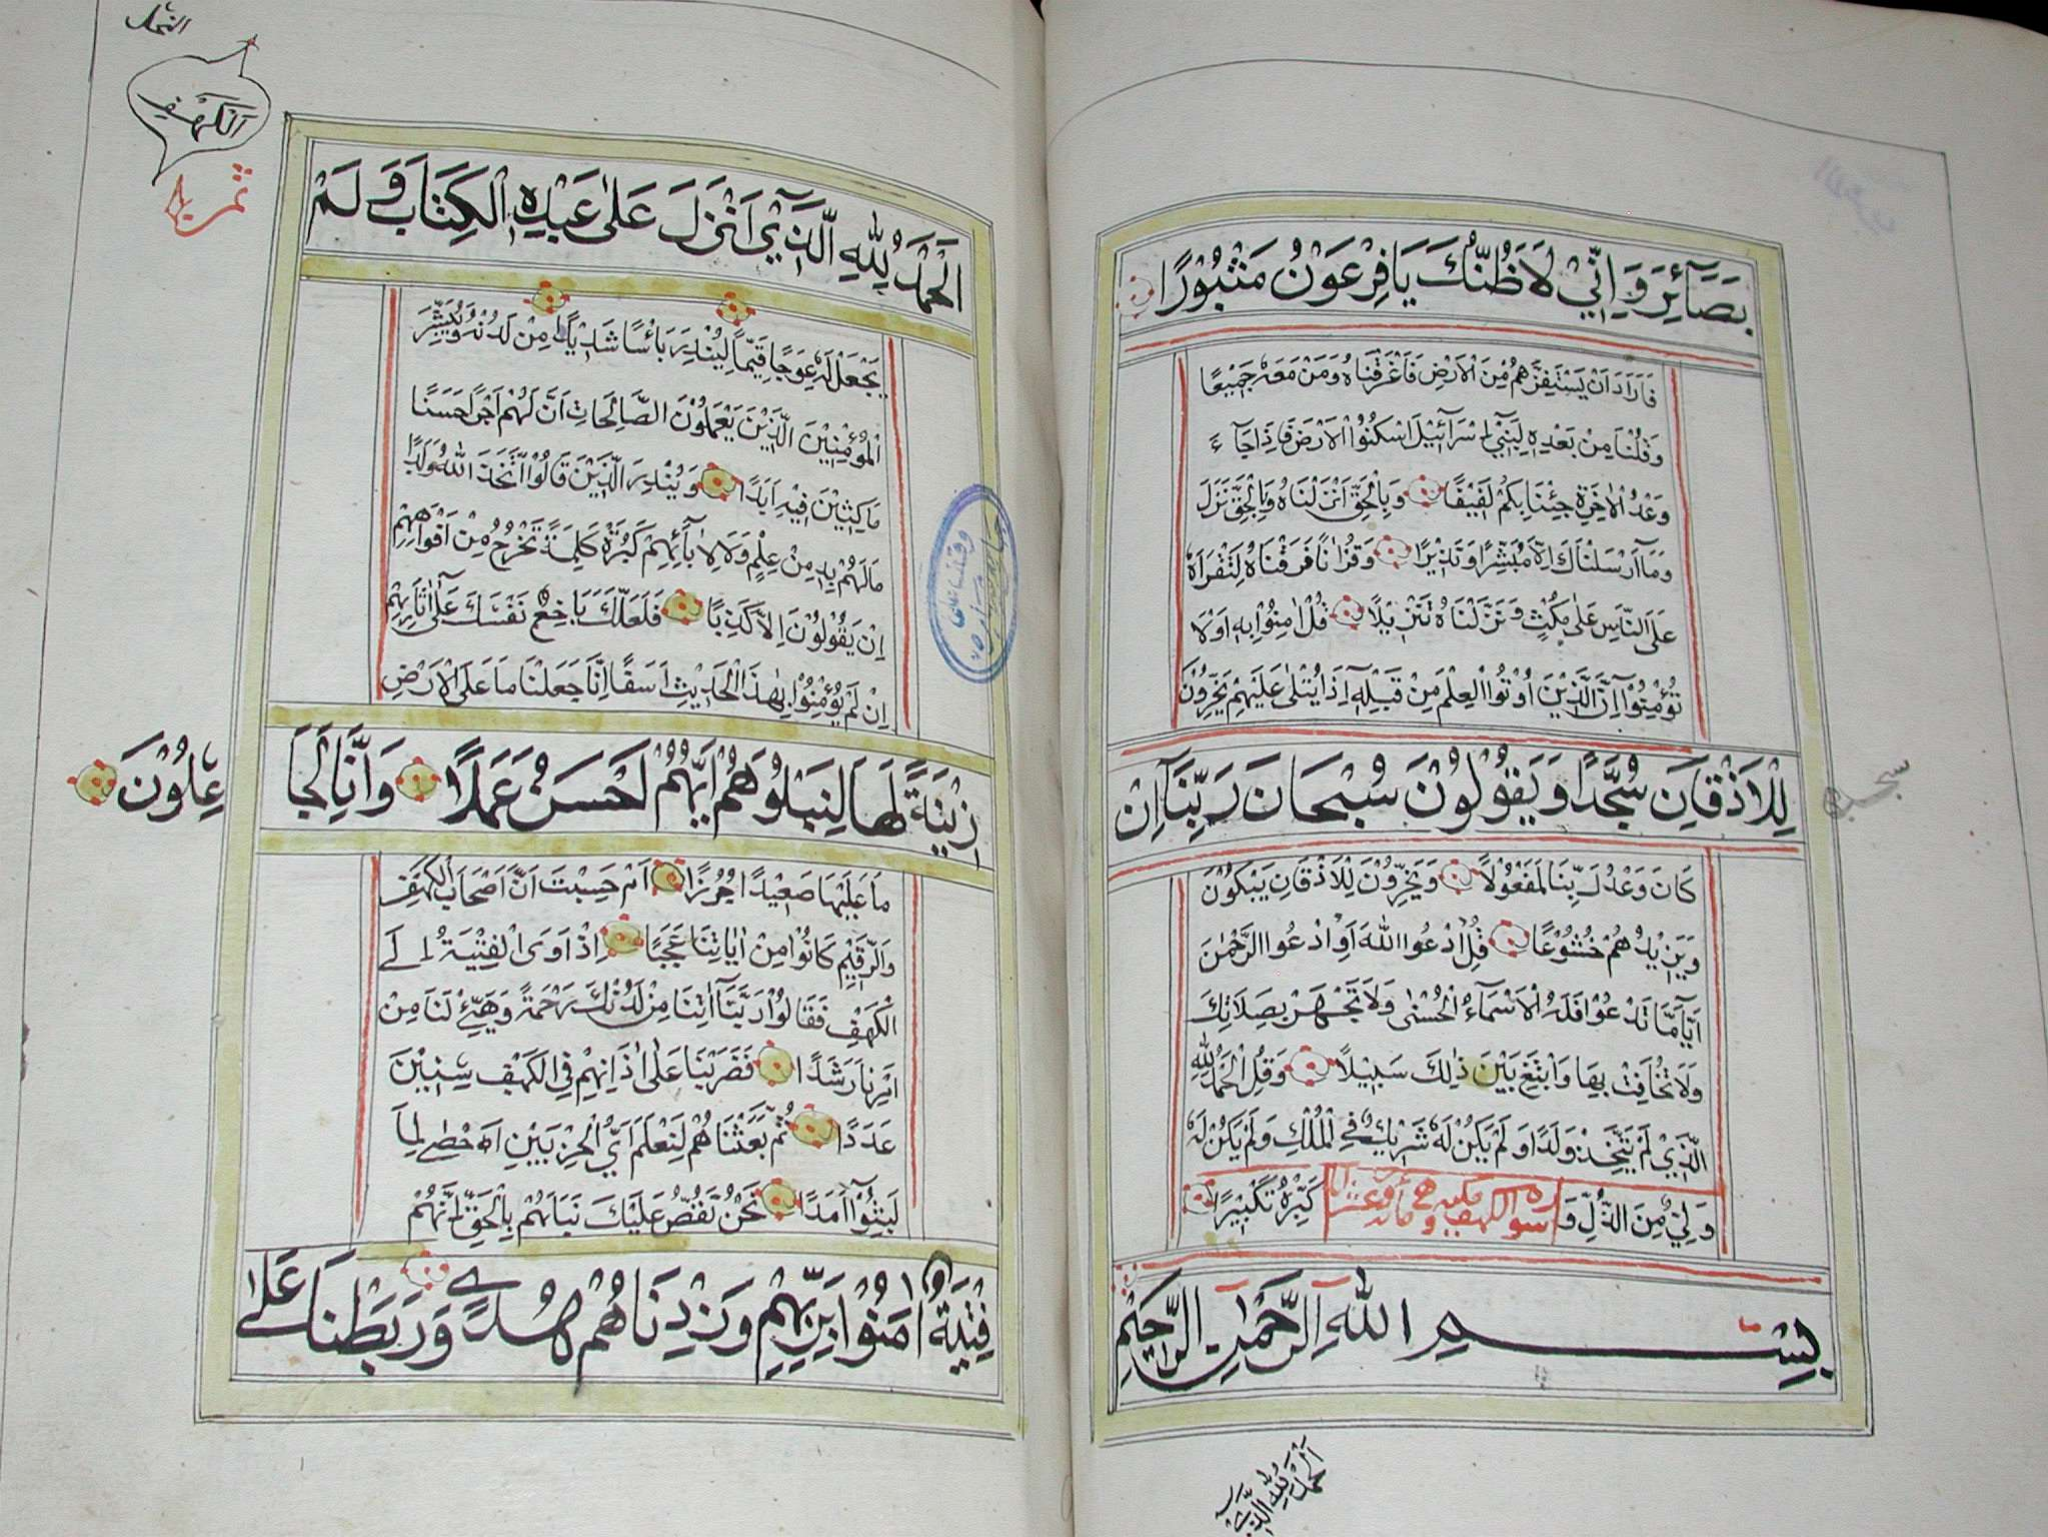 بَصَآئِرَ وَاِنِّيْ لَاَظُنُّكَ يَا فِرْعَوْنُ مَثْبُوْرًا
فَاَرَادَ اَنْ يَسْتَفِزَّهُمْ مِنَ الْاَرْضِ فَاَغْرَقْنَاهُ وَمَنْ مَعَهُ جَمِيْعًا
وَقُلْنَا مِنْ بَعْدِهٖ لِبَنِيْ اِسْرَآئِيْلَ اسْكُنُوا الْاَرْضَ فَاِذَا جَآءَ
وَعْدُ الْاٰخِرَةِ جِئْنَا بِكُمْ لَفِيْفًا وَبِالْحَقِّ اَنْزَلْنَاهُ وَبِالْحَقِّ نَزَلَ
وَمَآ اَرْسَلْنَاكَ اِلَّا مُبَشِّرًا وَنَذِيْرًا وَقُرْاٰنًا فَرَقْنَاهُ لِتَقْرَاَهُ
عَلَى النَّاسِ عَلٰى مُكْثٍ وَنَزَّلْنَاهُ تَنْزِيْلًا قُلْ اٰمِنُوْا بِهٖ اَوْ لَا
تُؤْمِنُوْا اِنَّ الَّذِيْنَ اُوْتُوا الْعِلْمَ مِنْ قَبْلِهٖ اِذَا يُتْلٰى عَلَيْهِمْ يَخِرُّوْنَ
لِلْاَذْقَانِ سُجَّدًا وَيَقُوْلُوْنَ سُبْحَانَ رَبِّنَا اِنْ
سجده
كَانَ وَعْدُ رَبِّنَا لَمَفْعُوْلًا وَيَخِرُّوْنَ لِلْاَذْقَانِ يَبْكُوْنَ
وَيَزِيْدُهُمْ خُشُوْعًا قُلِ ادْعُوا اللّٰهَ اَوِ ادْعُوا الرَّحْمٰنَ
اَيًّا مَّا تَدْعُوْا فَلَهُ الْاَسْمَآءُ الْحُسْنٰى وَلَا تَجْهَرْ بِصَلَاتِكَ
وَلَا تُخَافِتْ بِهَا وَابْتَغِ بَيْنَ ذٰلِكَ سَبِيْلًا وَقُلِ الْحَمْدُ لِلّٰهِ
الَّذِيْ لَمْ يَتَّخِذْ وَلَدًا وَلَمْ يَكُنْ لَهُ شَرِيْكٌ فِي الْمُلْكِ وَلَمْ يَكُنْ لَهُ
وَلِيٌّ مِنَ الذُّلِّ وَ سورة الكهف مكيه وهي مائة وعشر ايا كَبِّرْهُ تَكْبِيْرًا
بِسْمِ اللّٰهِ الرَّحْمٰنِ الرَّحِيْمِ
اَلْحَمْدُ لِلّٰهِ الَّذِي
النحل
اَلْكَهْفِ
اَلْحَمْدُ لِلّٰهِ الَّذِيْ اَنْزَلَ عَلٰى عَبْدِهِ الْكِتَابَ وَلَمْ
يَجْعَلْ لَهُ عِوَجًا قَيِّمًا لِيُنْذِرَ بَاْسًا شَدِيْدًا مِنْ لَدُنْهُ وَيُبَشِّرَ
الْمُؤْمِنِيْنَ الَّذِيْنَ يَعْمَلُوْنَ الصَّالِحَاتِ اَنَّ لَهُمْ اَجْرًا حَسَنًا
مَاكِثِيْنَ فِيْهِ اَبَدًا وَيُنْذِرَ الَّذِيْنَ قَالُوا اتَّخَذَ اللّٰهُ وَلَدًا
مَا لَهُمْ بِهٖ مِنْ عِلْمٍ وَلَا لِاٰبَآئِهِمْ كَبُرَتْ كَلِمَةً تَخْرُجُ مِنْ اَفْوَاهِهِمْ
اِنْ يَقُوْلُوْنَ اِلَّا كَذِبًا فَلَعَلَّكَ بَاخِعٌ نَفْسَكَ عَلٰى اٰثَارِهِمْ
اِنْ لَمْ يُؤْمِنُوْا بِهٰذَا الْحَدِيْثِ اَسَفًا اِنَّا جَعَلْنَا مَا عَلَى الْاَرْضِ
زِيْنَةً لَهَا لِنَبْلُوَهُمْ اَيُّهُمْ اَحْسَنُ عَمَلًا وَاِنَّا لَجَاعِلُوْنَ
مَا عَلَيْهَا صَعِيْدًا جُرُزًا اَمْ حَسِبْتَ اَنَّ اَصْحَابَ الْكَهْفِ
وَالرَّقِيْمِ كَانُوْا مِنْ اٰيَاتِنَا عَجَبًا اِذْ اَوَى الْفِتْيَةُ اِلَى
الْكَهْفِ فَقَالُوْا رَبَّنَا اٰتِنَا مِنْ لَدُنْكَ رَحْمَةً وَهَيِّئْ لَنَا مِنْ
اَمْرِنَا رَشَدًا فَضَرَبْنَا عَلٰى اٰذَانِهِمْ فِي الْكَهْفِ سِنِيْنَ
عَدَدًا ثُمَّ بَعَثْنَاهُمْ لِنَعْلَمَ اَيُّ الْحِزْبَيْنِ اَحْصٰى لِمَا
لَبِثُوْا اَمَدًا نَحْنُ نَقُصُّ عَلَيْكَ نَبَاَهُمْ بِالْحَقِّ اِنَّهُمْ
فِتْيَةٌ اٰمَنُوْا بِرَبِّهِمْ وَزِدْنَاهُمْ هُدًى وَرَبَطْنَا عَلٰى